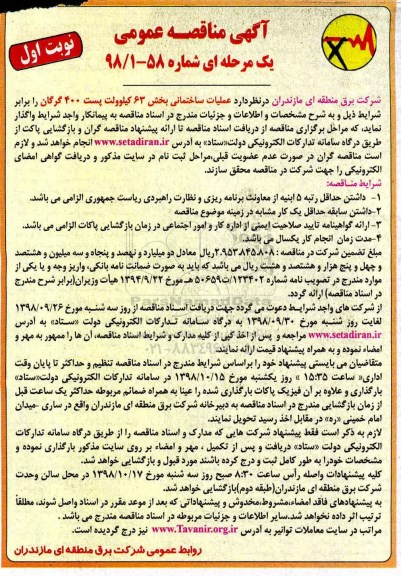 آگهی مناقصه عمومی
یک مرحله ای شماره ۵۸-۹۸/۱
نوبت اول
شرکت برق منطقه ای مازندران درنظردارد عملیات ساختمانی بخش ۶۳ کیلوولت پست ۴۰۰ گرگان را برابر
شرایط ذیل و به شرح مشخصات و اطلاعات و جزئیات مندرج در اسناد مناقصه به پیمانکار واجد شرایط واگذار
نماید، که مراحل برگزاری مناقصه از دریافت اسناد مناقصه تا ارائه پیشنهاد مناقصه گران و بازگشایی پاکت از
طریق درگاه سامانه تدارکات الکترونیکی دولت«ستاد» به آدرس www.setadiran.ir انجام خواهد شد و لازم
است مناقصه گران در صورت عدم عضویت قبلی،مراحل ثبت نام در سایت مذکور و دریافت گواهی امضای
الکترونیکی را جهت شرکت در مناقصه محقق سازند.
شرایط مناقصه:
۱- داشتن حداقل رتبه ۵ ابنیه از معاونت برنامه ریزی و نظارت راهبردی ریاست جمهوری الزامی می باشد.
۲-داشتن سابقه حداقل یک کار مشابه در زمینه موضوع مناقصه
۳- ارائه گواهینامه تایید صلاحیت ایمنی از اداره کار و امور اجتماعی در زمان بازگشایی پاکات الزامی می باشد.
۴-مدت زمان انجام کار یکسال می باشد.
مبلغ تضمین شرکت در مناقصه : ۲.۹۵۳.۸۴۵.۸۰۸ریال معادل دو میلیارد و نهصد و پنجاه و سه میلیون و هشتصد
و چهل و پنج هزار و هشتصد و هشت ریال می باشد که باید به صورت ضمانت نامه بانکی، واریز وجه و یا یکی از
موارد مندرج در تصویب نامه شماره ۱۲۳۴۰۲/ت۵۰۶۵۹ هـ مورخ ۱۳۹۴/۹/۲۲ هیأت وزیران(برابر شرح مندرج
در اسناد مناقصه) ارائه گردد.
از شرکت های واجد شرایط دعوت می گردد جهت دریافت اسناد مناقصه از روز سه شنبه مورخ ۱۳۹۸/۰۹/۲۶
لغایت روز شنبه مورخ ۱۳۹۸/۰۹/۳۰ به درگاه سامانه تدارکات الکترونیکی دولت «ستاد» به آدرس
www.setadiran.ir مراجعه و پس از اخذ کپی از کلیه مدارک و شرایط اسناد مناقصه، آن ها را ممهور به مهر و
امضاء نموده و به همراه پیشنهاد قیمت ارائه نمایند.
متقاضیان می بایستی پیشنهاد خود را براساس شرایط مندرج در اسناد مناقصه تنظیم و حداکثر تا پایان وقت
اداری« ساعت ۱۵:۳۵ » روز یکشنبه مورخ ۱۳۹۸/۱۰/۱۵ در سامانه تدارکات الکترونیکی دولت«ستاد»
بارگذاری و علاوه بر آن فیزیک پاکات بارگذاری شده را عینا به همراه ضمائم مربوطه حداکثر یک ساعت قبل
از زمان بازگشایی مندرج در اسناد مناقصه به دبیرخانه شرکت برق منطقه ای مازندران واقع در ساری -میدان
امام خمینی «ره» در مقابل اخذ رسید تحویل نمایند.
لازم به ذکر است فقط پیشنهاد شرکت هایی که مدارک و اسناد مناقصه را از طریق درگاه سامانه تدارکات
الکترونیکی دولت «ستاد» دریافت و پس از تکمیل ، مهر و امضاء بر روی سایت مذکور بارگذاری نموده و
مشخصات خودرا به طور کامل ثبت و درج کرده باشند مورد قبول و بازگشایی خواهد شد.
کلیه پیشنهادات واصله رأس ساعت ۸:۳۰ صبح روز سه شنبه مورخ ۱۳۹۸/۱۰/۱۷ در محل سالن وحدت
شرکت برق منطقه ای مازندران(طبقه دوم)بازگشایی خواهد شد.
به پیشنهادهای فاقد امضاء،مشروط،مخدوش و پیشنهاداتی که بعد از موعد مقرر در اسناد واصل شوند، مطلقاً
ترتیب اثر داده نخواهد شد.سایر اطلاعات و جزئیات مربوطه در اسناد مناقصه مندرج می باشد .
مراتب در سایت معاملات توانیر به آدرس www.Tavanir.org.ir نیز درج گردیده است.
روابط عمومی شرکت برق منطقه ای مازندران